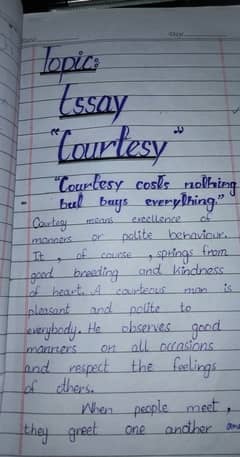 Topic:
Essay
"Courtesy"
"Courtesy costs nothing
but buys everything."
Courtesy means excellence of
manners or polite behaviour.
It, of course, springs from
good breeding and kindness
of heart. A courteous man is
pleasant and polite to
everybody. He observes good
manners on all occasions
and respect the feelings
of others.
When people meet,
they greet one another and